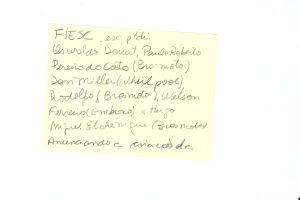 FIESC, esq p/ di:
Oswaldo Douat, Paulo Roberto
Pereira do Couto (Bro-moto.)
Don Miller (Whirlpool)
Rodolfo (Bramoto), Welson
Ferreira (Embraco) e Hugo
Miguel Etchenique (Brasmotor
Anunciando a criação da